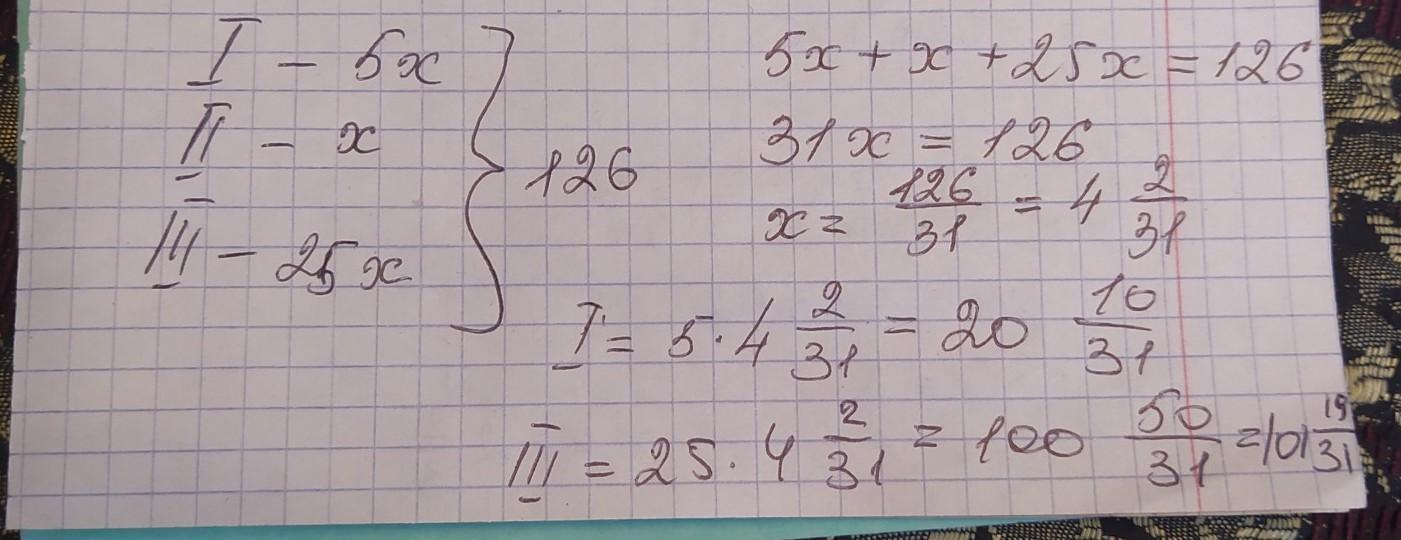 I - 5x
II - x
III - 25x
126
5x + x + 25x = 126
31x = 126
x = 126/31 = 4 2/31
I = 5 · 4 2/31 = 20 10/31
III = 25 · 4 2/31 = 100 50/31 = 101 19/31